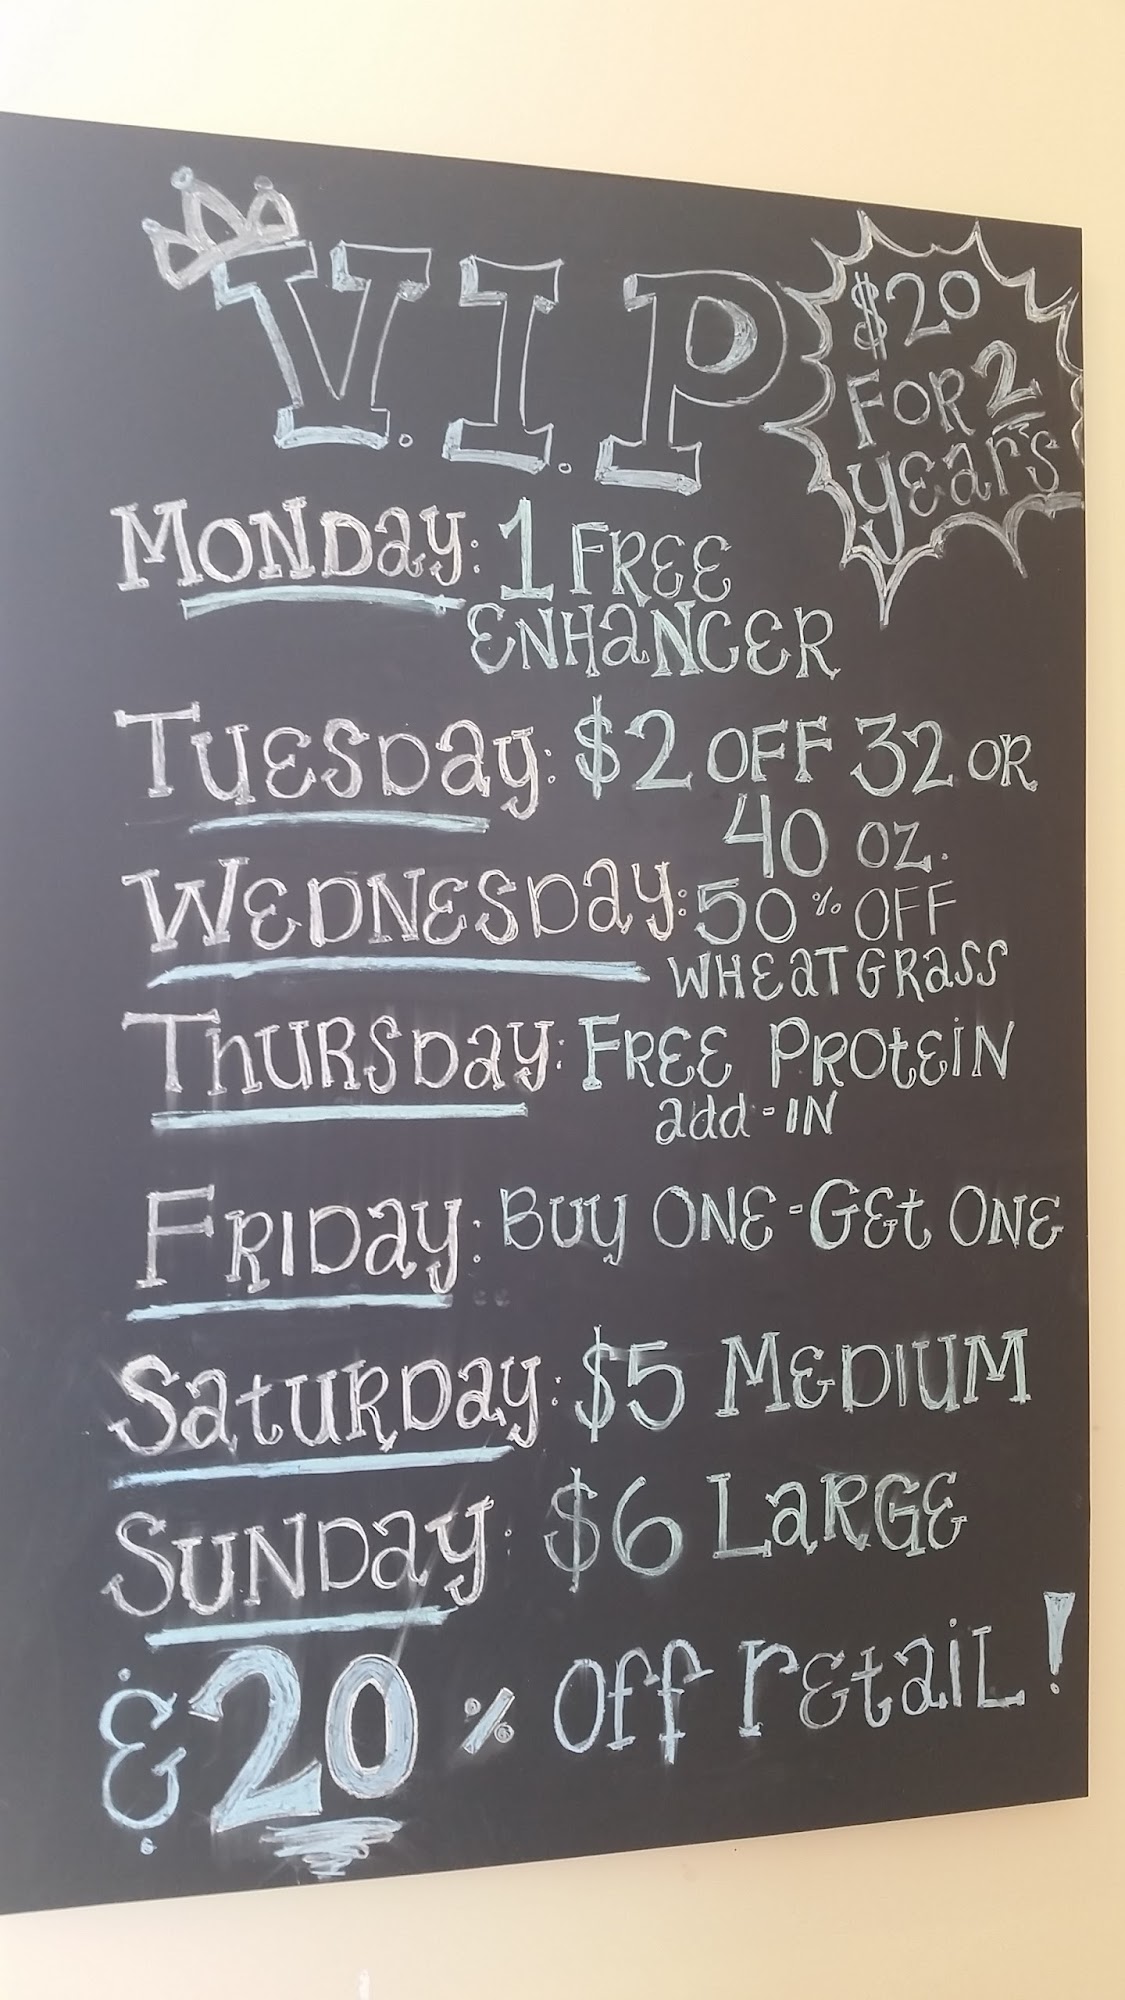 V.I.P
$20
FOR 2
years
MONDay: 1 FREE
ENHaNCER
TUESDay: $2 OFF 32 OR
40 OZ.
WEDNESDay: 50% OFF
WHEATGRASS
THURSDay: FREE PROtEiN
add-IN
FRIDay: Buy ONE-GEt ONE
SatURDay: $5 MEDIUM
SUNDay: $6 LaRGE
& 20% Off rEtaiL!